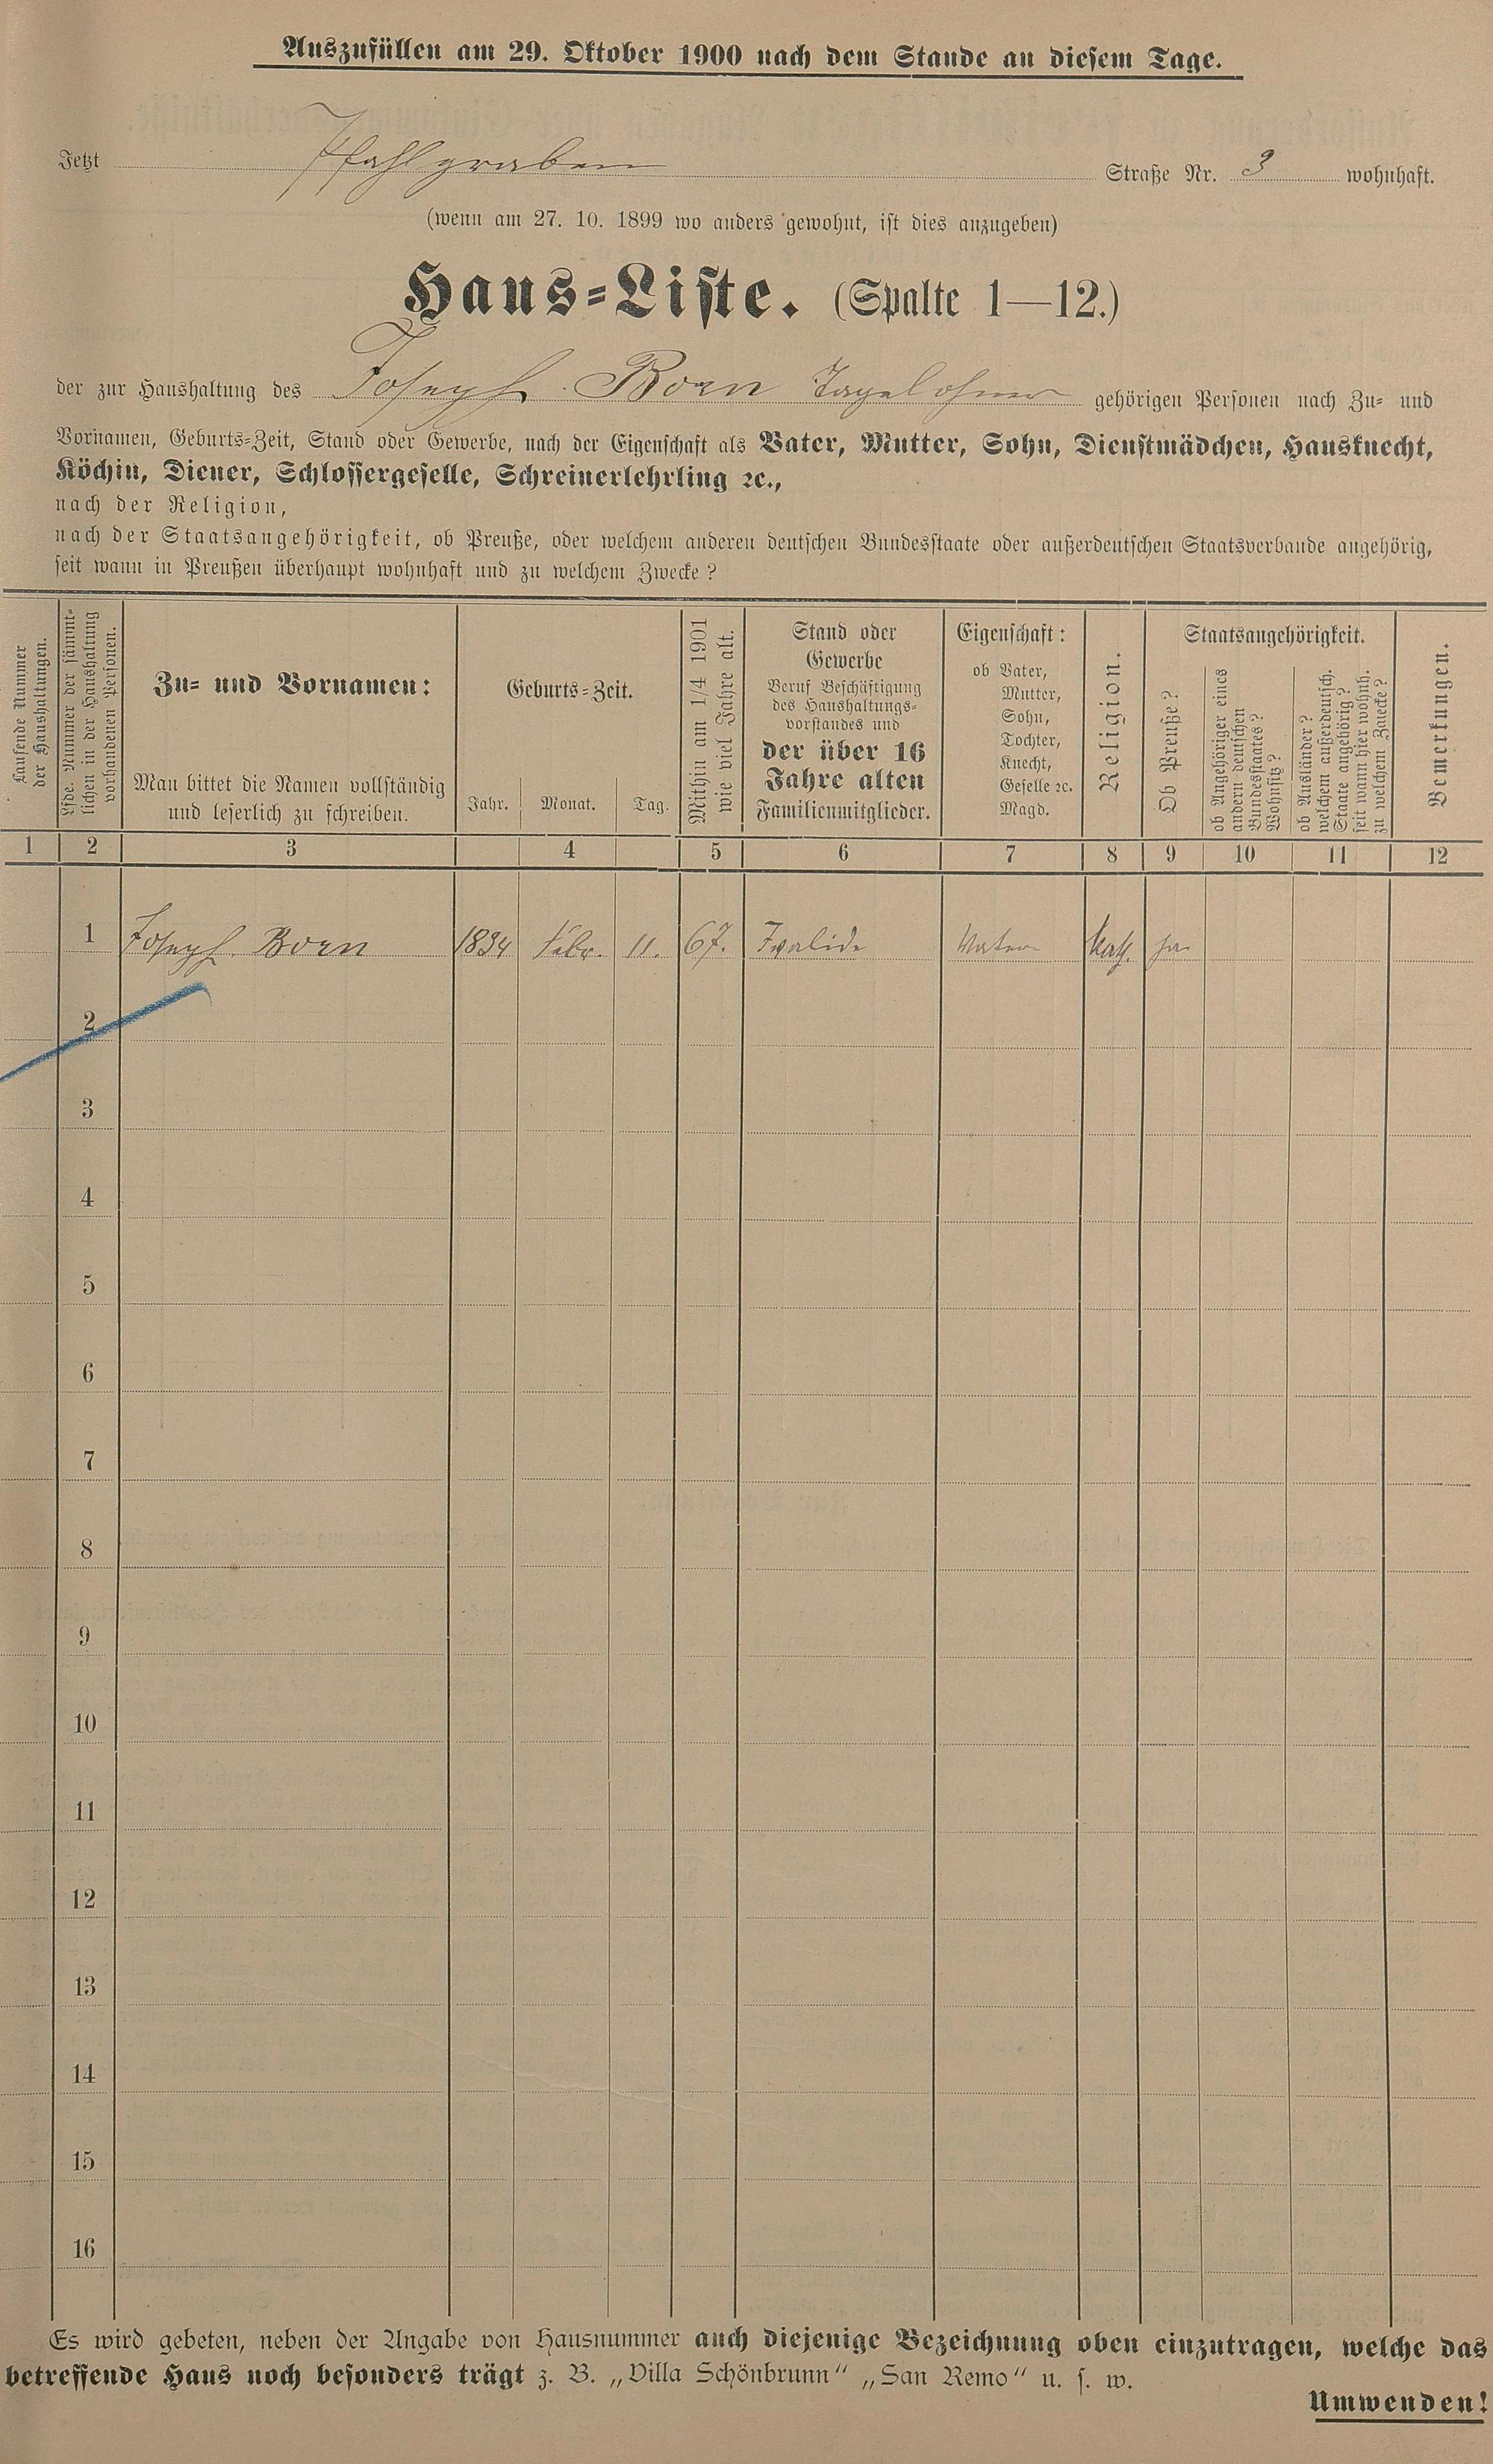 Auszufüllen am 29. Oktober 1900 nach dem Stande an diesem Tage.
Jetzt Pfahlgraben Straße Nr. 3 wohnhaft.
(wenn am 27. 10. 1899 wo anders gewohnt, ist dies anzugeben)
Haus-Liste. (Spalte 1—12.)
der zur Haushaltung des Joseph Born Tagelöhner gehörigen Personen nach Zu- und
Vornamen, Geburts-Zeit, Stand oder Gewerbe, nach der Eigenschaft als Vater, Mutter, Sohn, Dienstmädchen, Hausknecht,
Köchin, Diener, Schlossergeselle, Schreinerlehrling ꝛc.,
nach der Religion,
nach der Staatsangehörigkeit, ob Preuße, oder welchem anderen deutschen Bundesstaate oder außerdeutschen Staatsverbande angehörig,
seit wann in Preußen überhaupt wohnhaft und zu welchem Zwecke?
Laufende Nummer
der Haushaltungen.
Lfde. Nummer der sämmt-
lichen in der Haushaltung
vorhandenen Personen.
Zu- und Vornamen:
Man bittet die Namen vollständig
und leserlich zu schreiben.
Geburts-Zeit.
Jahr. Monat. Tag.
Mithin am 1/4 1901
wie viel Jahre alt.
Stand oder
Gewerbe
Beruf Beschäftigung
des Haushaltungs-
vorstandes und
der über 16
Jahre alten
Familienmitglieder.
Eigenschaft:
ob Vater,
Mutter,
Sohn,
Tochter,
Knecht,
Geselle ꝛc.
Magd.
Religion.
Staatsangehörigkeit.
Ob Preuße?
ob Angehöriger eines
andern deutschen
Bundesstaates?
Wohnsitz?
ob Ausländer?
welchem außerdeutsch.
Staate angehörig?
seit wann hier wohnh.
zu welchem Zwecke?
Bemerkungen.
1 2 3 4 5 6 7 8 9 10 11 12
1 Joseph Born 1834 Febr. 11. 67. Ivalide Vater Kath. ja
2
3
4
5
6
7
8
9
10
11
12
13
14
15
16
Es wird gebeten, neben der Angabe von Hausnummer auch diejenige Bezeichnung oben einzutragen, welche das
betreffende Haus noch besonders trägt z. B. „Villa Schönbrunn“ „San Remo“ u. s. w.
Umwenden!